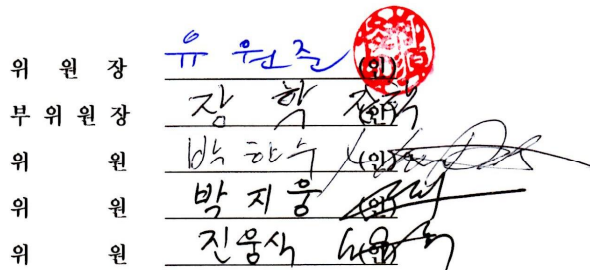 위 원 장 유 원준 (인)
부 위 원 장 장 학 (인)
위 원 박 하수 (인)
위 원 박 지 웅 (인)
위 원 진웅식 (인)